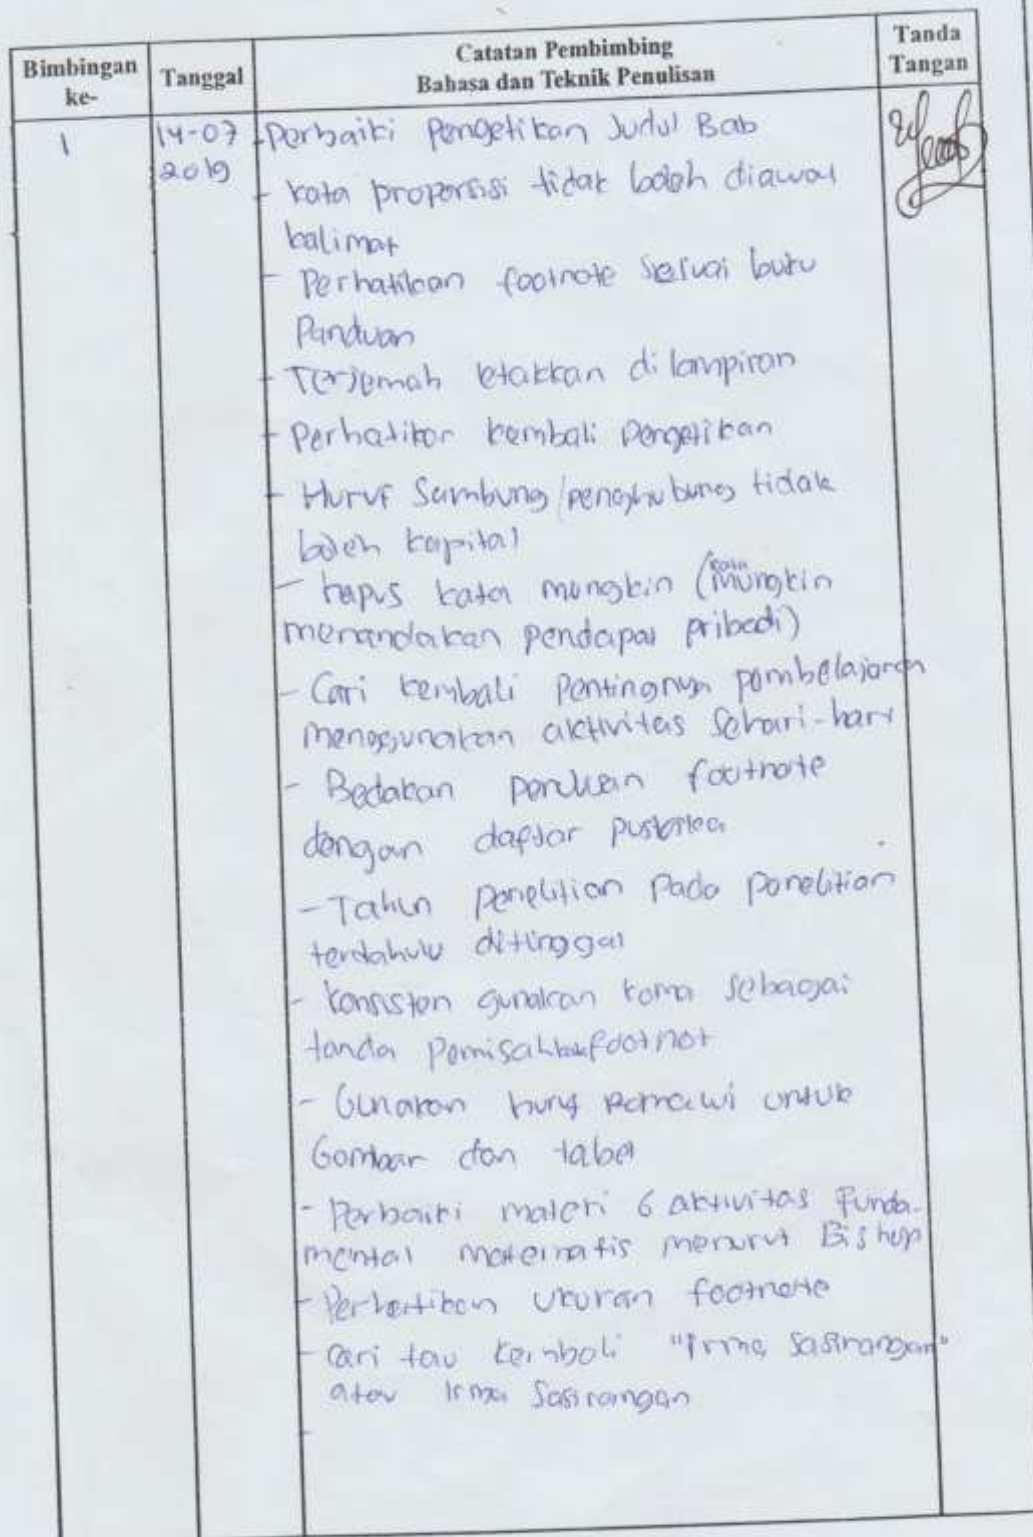 Bimbingan ke-
Tanggal
Catatan Pembimbing
Bahasa dan Teknik Penulisan
Tanda Tangan
1
14-07
2019
- Perbaiki Pengetikan Judul Bab
- kata proporsisi tidak boleh diawal
kalimat
- Perhatikan footnote sesuai buku
Panduan
- Terjemah letakkan di lampiran
- Perhatikan kembali pengetikan
- Huruf Sambung/penghubung tidak
boleh kapital
- hapus kata mungkin (kata mungkin
menandakan pendapat pribadi)
- Cari kembali Pentingnya pembelajaran
menggunakan aktivitas Sehari-hari
- Bedakan penulisan footnote
dengan daftar pustaka
- Tahun penelitian Pada penelitian
terdahulu ditinggal
- Konsisten gunakan koma sebagai
tanda Pemisah footnot
- Gunakan huruf untuk
Gambar dan tabel
- Perbaiki materi 6 aktivitas Funda-
mental matematis menurut Bishop
- Perhatikan ukuran footnote
- Cari tau kembali "Irma Sasirangan"
atau Irma Sasirangan